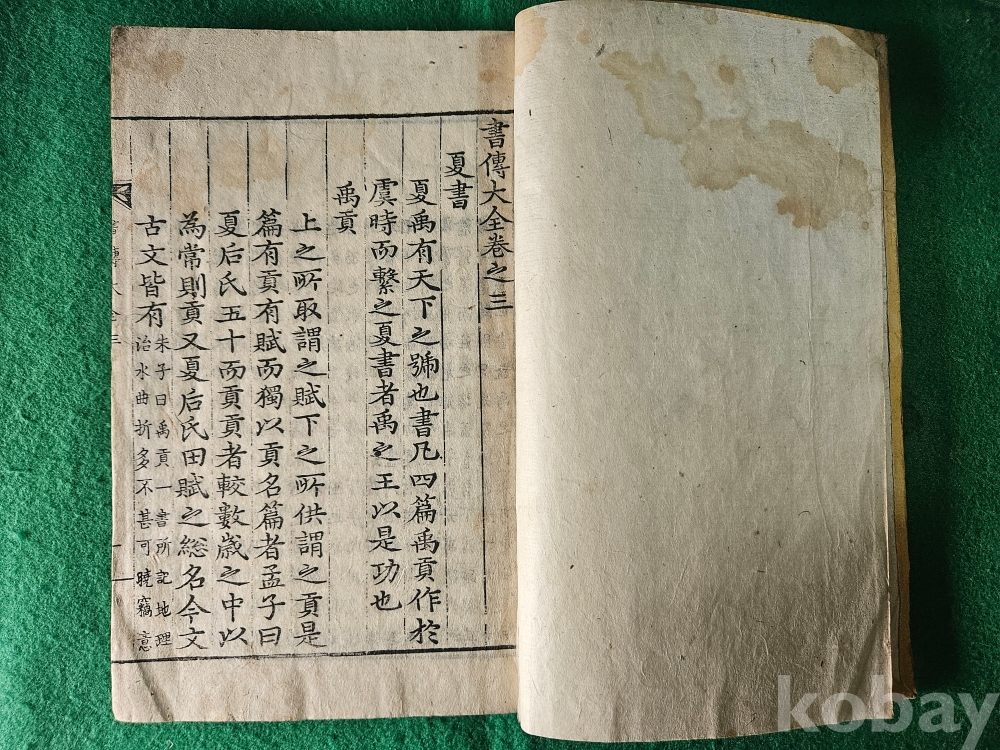 書傳大全卷之三
夏書
夏禹有天下之號也書凡四篇禹貢作於
虞時而繫之夏書者禹之王以是功也
禹貢
上之所取謂之賦下之所供謂之貢是
篇有貢有賦而獨以貢名篇者孟子曰
夏后氏五十而貢貢者較數歲之中以
為常則貢又夏后氏田賦之総名今文
古文皆有
朱子曰禹貢一書所記地理
治水曲折多不甚可曉竊意
書傳大全三
kobay